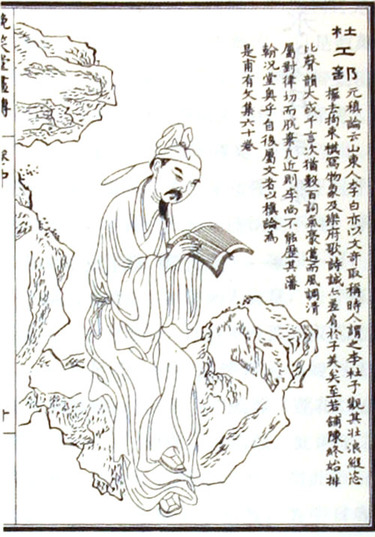 杜工部
元稹論云山東人李白亦以文奇取稱時人謂之李杜予觀其壯浪縱恣
擺去拘束模寫物象及樂府歌詩誠亦差肩於子美矣至若鋪陳終始排
比聲韻大或千言次猶數百詞氣豪邁而風調清
屬對律切而脫棄凡近則李尚不能歷其藩
翰況堂奧乎自後屬文者以稹論為
是甫有文集六十卷
晚笑堂畫傳